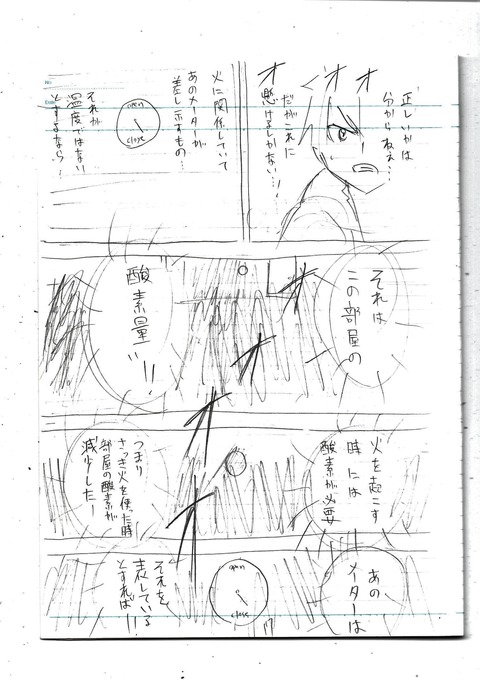 正しいかは
分からねえ…
だがこれに
懸けるしかない…!
オオオ
火に関係していて
あのメーターが
差し示すもの…
open
close
それが
温度ではない
とするなら…
それは
この部屋の
酸素量!!
火を起こす
時には
酸素が必要
つまり
さっき火を使った時
部屋の酸素が
減少した!
あの
メーターは
open
close
それを
表している
とすれば!!